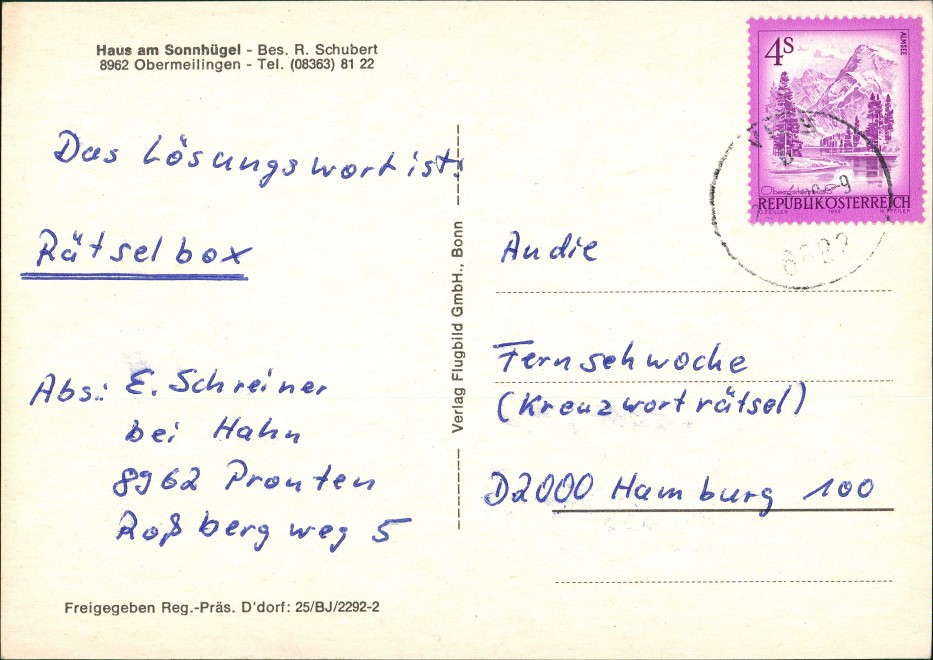 Haus am Sonnhügel - Bes. R. Schubert
8962 Obermeilingen - Tel. (08363) 81 22
Das Lösungswort ist:
Rätselbox
Abs.: E. Schreiner
bei Hahn
8962 Pronten
Roßbergweg 5
Freigegeben Reg.-Präs. D'dorf: 25/BJ/2292-2
Verlag Flugbild GmbH., Bonn
4S
ALMSEE
REPUBLIK ÖSTERREICH
An die
Fernsehwoche
(Kreuzworträtsel)
D2000 Hamburg 100